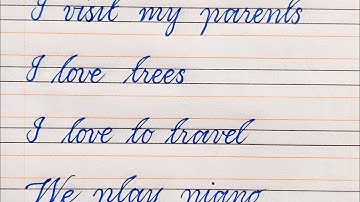 I visit my parents
I love trees
I love to travel
We play piano